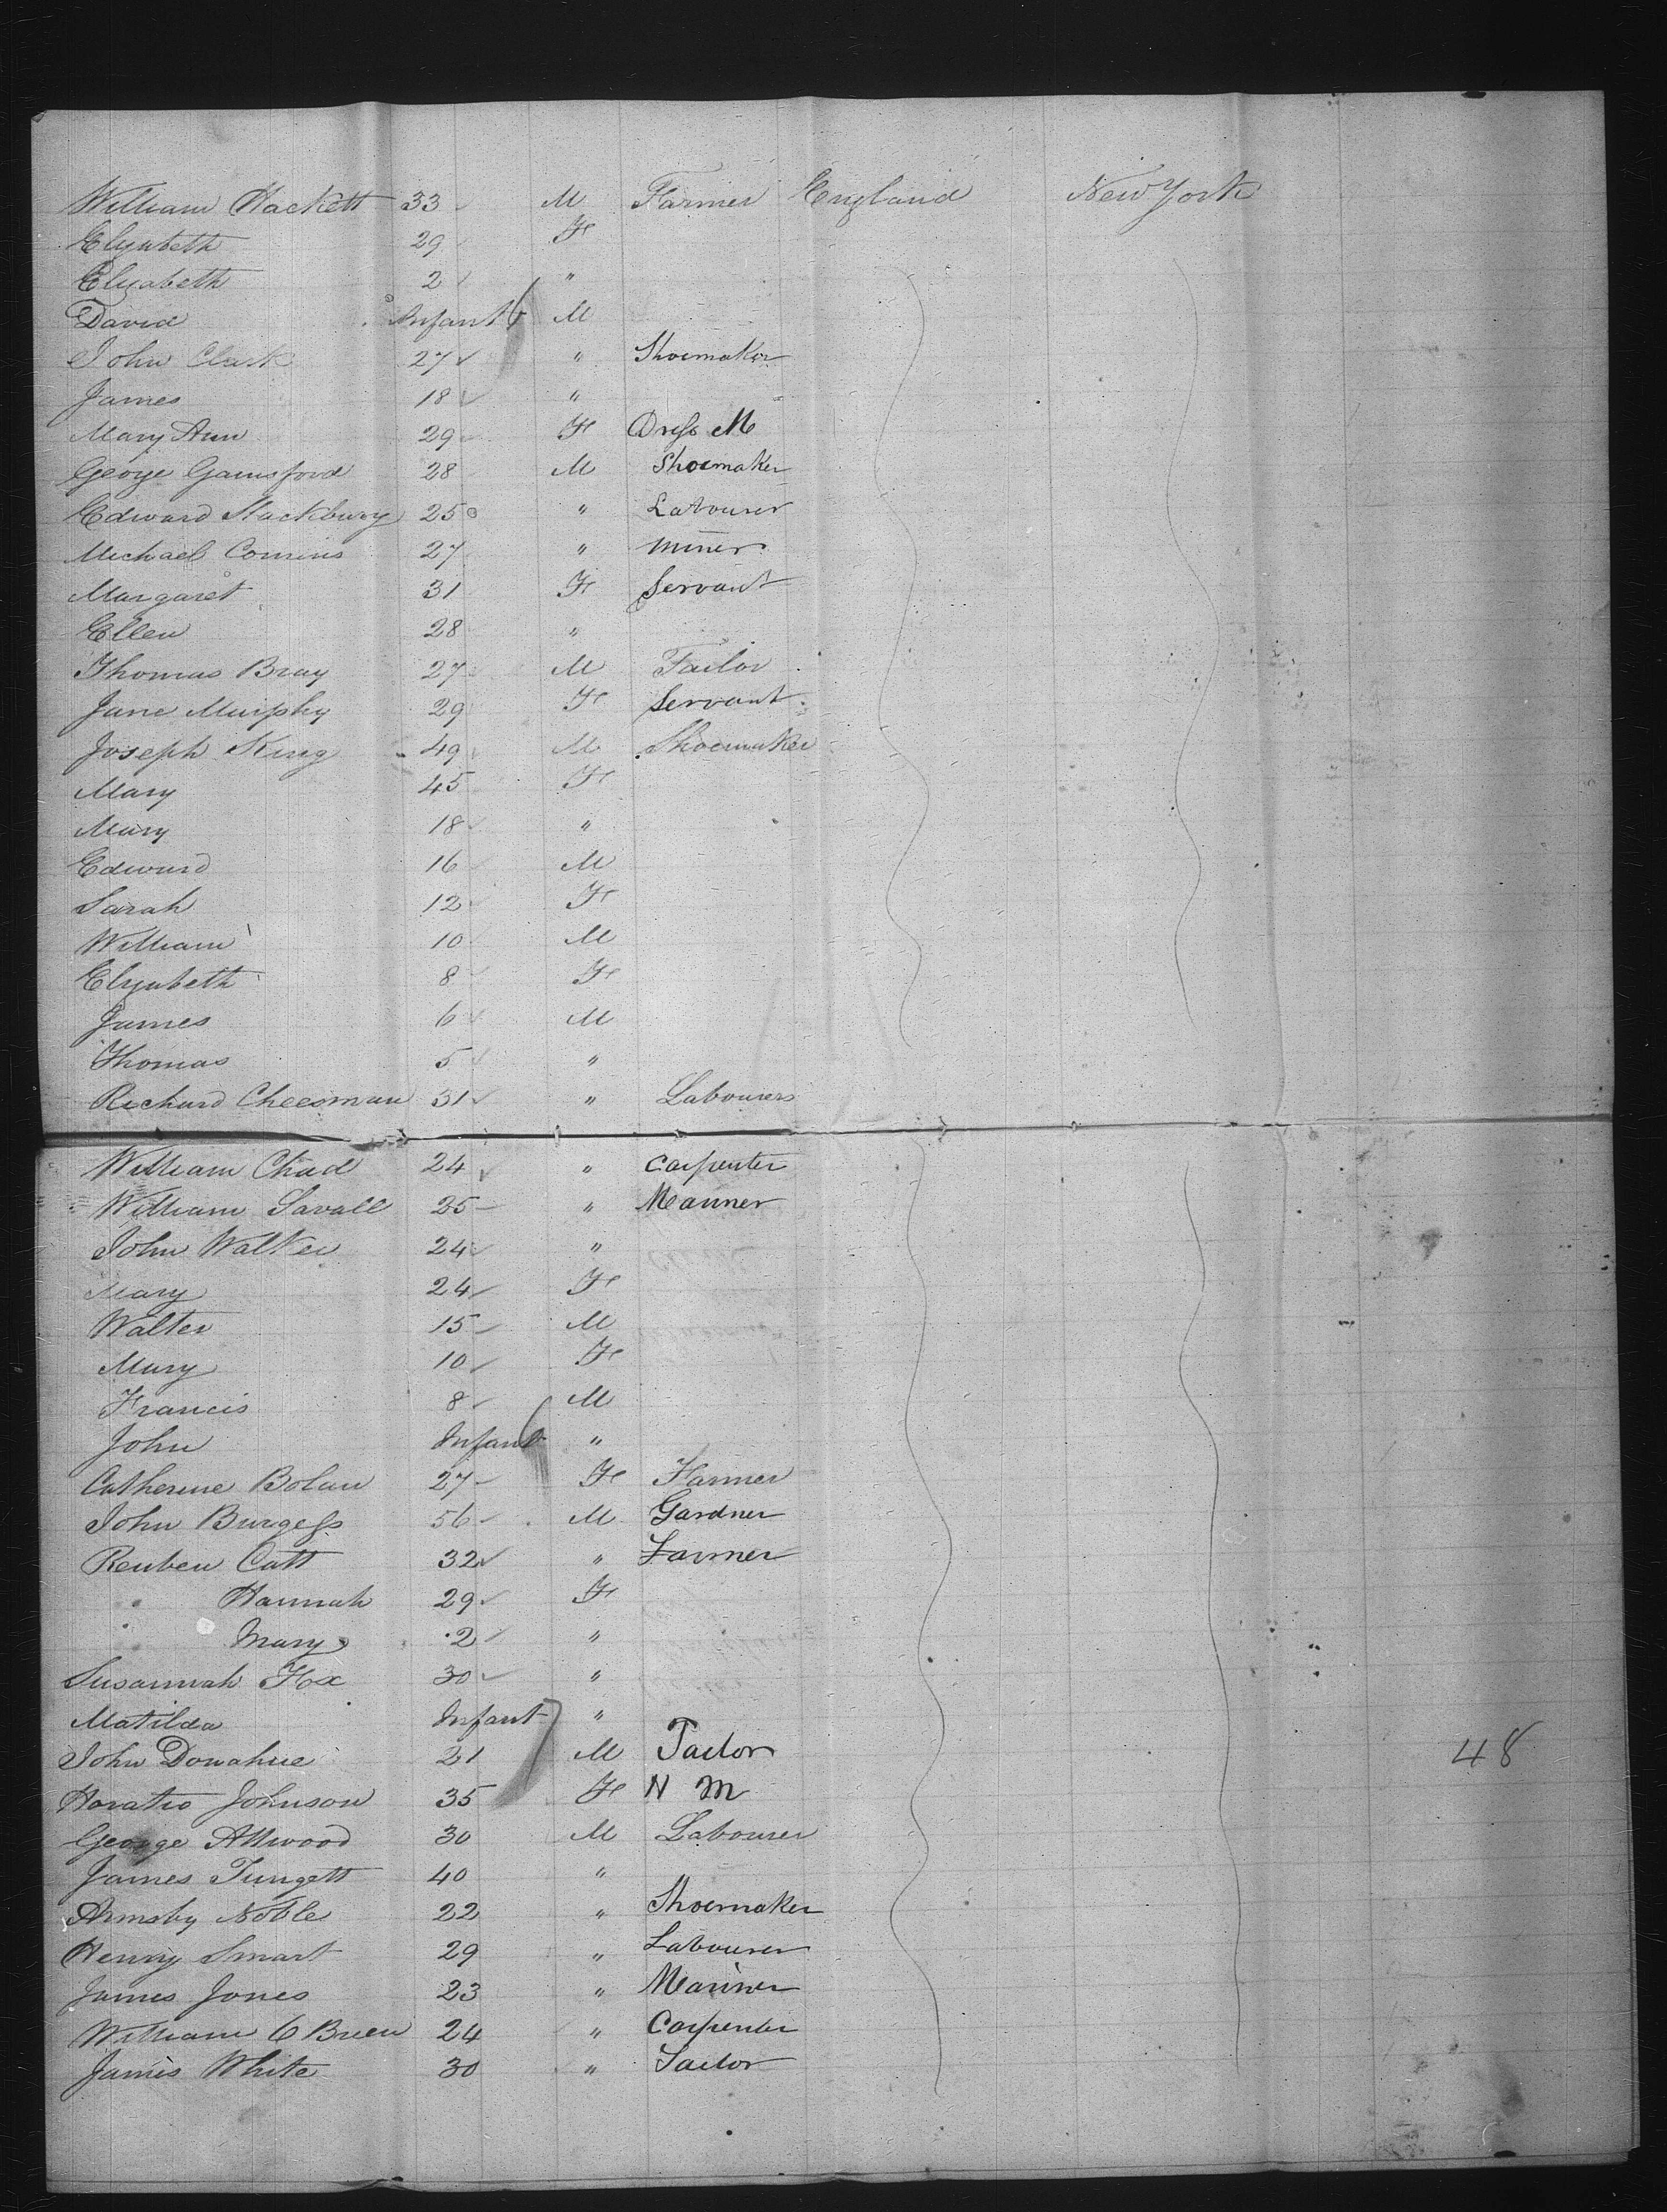 William Hackett 33 M Farmer England New York
Elizabeth 29 F
Elizabeth 2 "
David Infant M
John Clark 27 " Shoemaker
James 18 "
Mary Ann 29 F Dress M
George Gainsford 28 M Shoemaker
Edward Hackbury 25 " Labourer
Michael Comins 27 " Miner
Margaret 31 F Servant
Ellen 28 "
Thomas Bray 27 M Tailor
Jane Murphy 29 F Servant
Joseph King 49 M Shoemaker
Mary 45 F
Mary 18 "
Edward 16 M
Sarah 12 F
William 10 M
Elizabeth 8 F
James 6 M
Thomas 5 "
Richard Cheesman 31 " Labourers
William Chad 24 " Carpenter
William Savall 25 " Mariner
John Walker 24 "
Mary 24 F
Walter 15 M
Mary 10 F
Francis 8 M
John Infant "
Catherine Bolan 27 F Farmer
John Burgess 56 M Gardner
Reuben Catt 32 " Farmer
" Hannah 29 F
" Mary 2 "
Susannah Fox 30 "
Matilda Infant "
John Donahue 21 M Tailor 48
Horatio Johnson 35 F N M
George Attwood 30 M Labourer
James Tungett 40 "
Armsby Noble 22 " Shoemaker
Henry Smart 29 " Labourer
James Jones 23 " Mariner
William O Brien 24 " Carpenter
James White 30 " Sailor